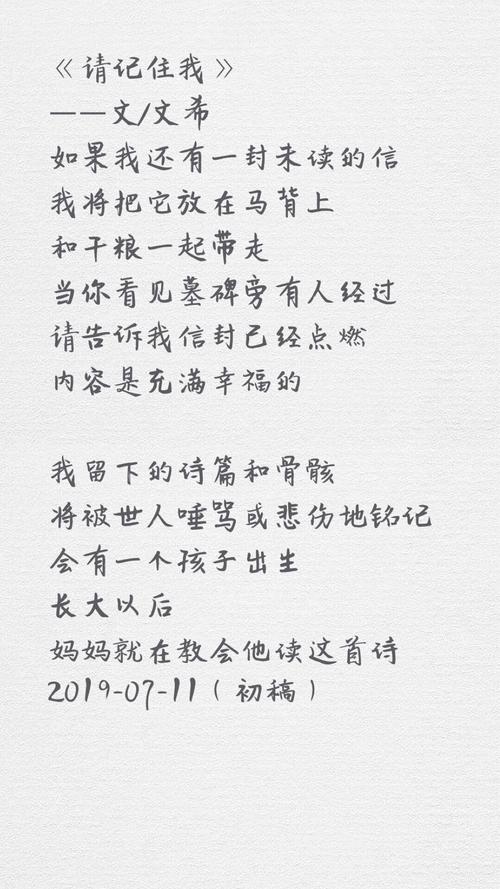 《请记住我》
——文/文希
如果我还有一封未读的信
我将把它放在马背上
和干粮一起带走
当你看见墓碑旁有人经过
请告诉我信封已经点燃
内容是充满幸福的
我留下的诗篇和骨骸
将被世人唾骂或悲伤地铭记
会有一个孩子出生
长大以后
妈妈就在教会他读这首诗
2019-07-11（初稿）